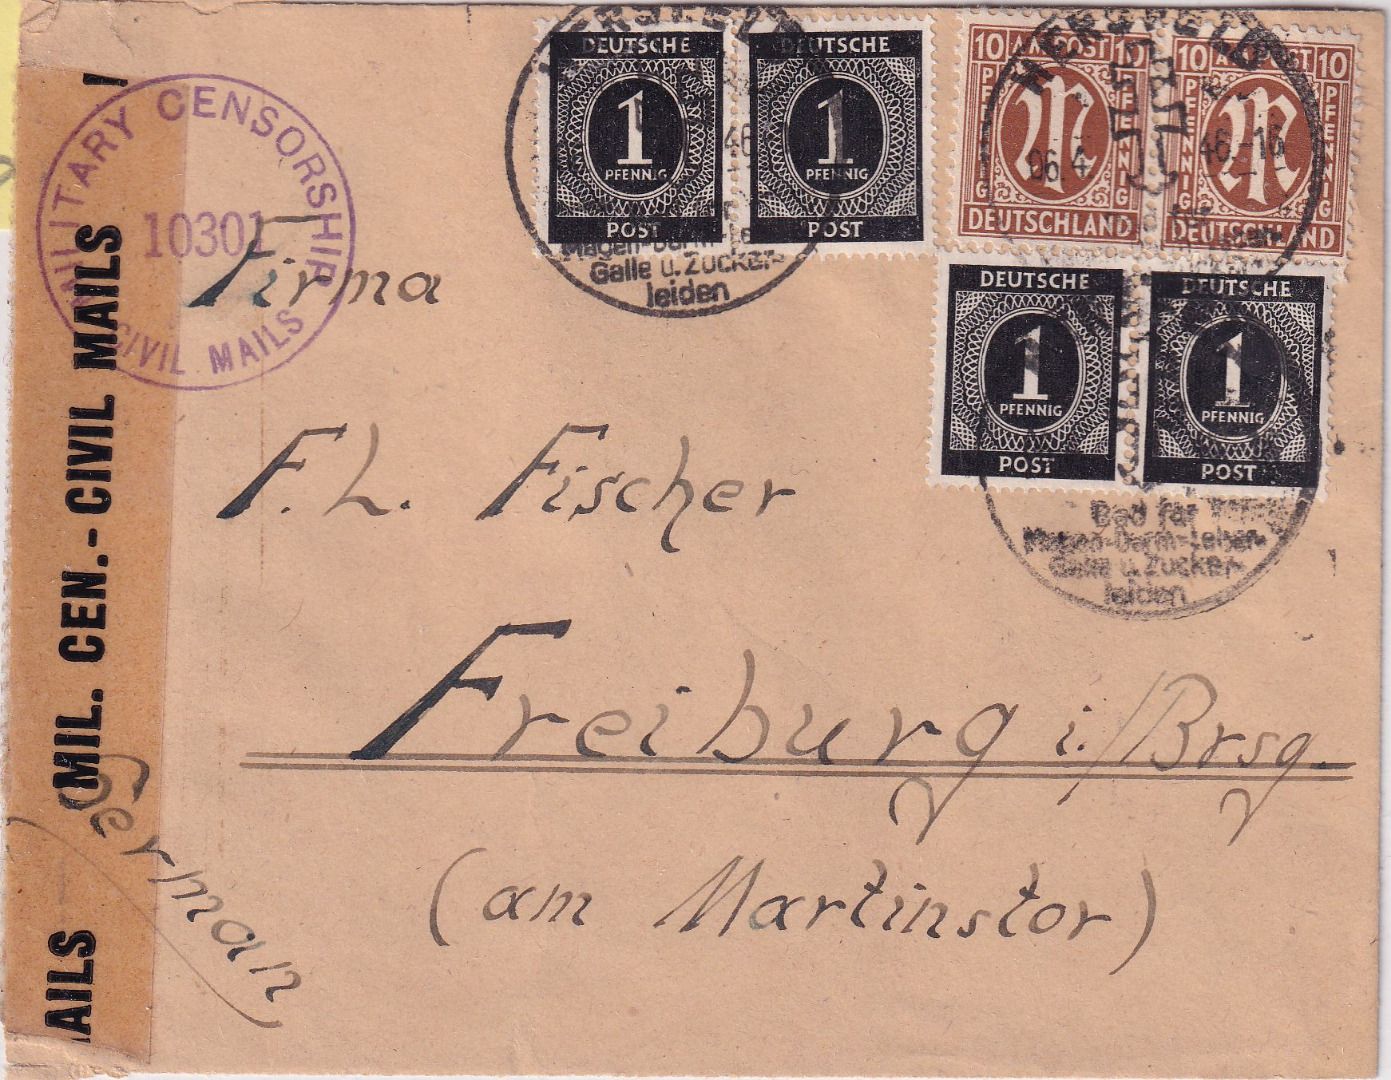 MILITARY CENSORSHIP
10301
CIVIL MAILS
MIL. CEN.-CIVIL MAILS
AILS
HERSFELD
DEUTSCHE
1
PFENNIG
POST
DEUTSCHE
1
PFENNIG
POST
46
Magen-Darm-Le
Galle u. Zucker-
leiden
10 AM POST 10
PFENNIG
PFENNIG
M
DEUTSCHLAND
10 AM POST 10
PFENNIG
PFENNIG
M
DEUTSCHLAND
HERSFELD
06.4
46.-16
DEUTSCHE
1
PFENNIG
POST
DEUTSCHE
1
PFENNIG
POST
Bad für
Magen-Darm-Leber-
Galle u. Zucker-
leiden
Firma
F. L. Fischer
Freiburg i./Brsg.
(am Martinstor)
German